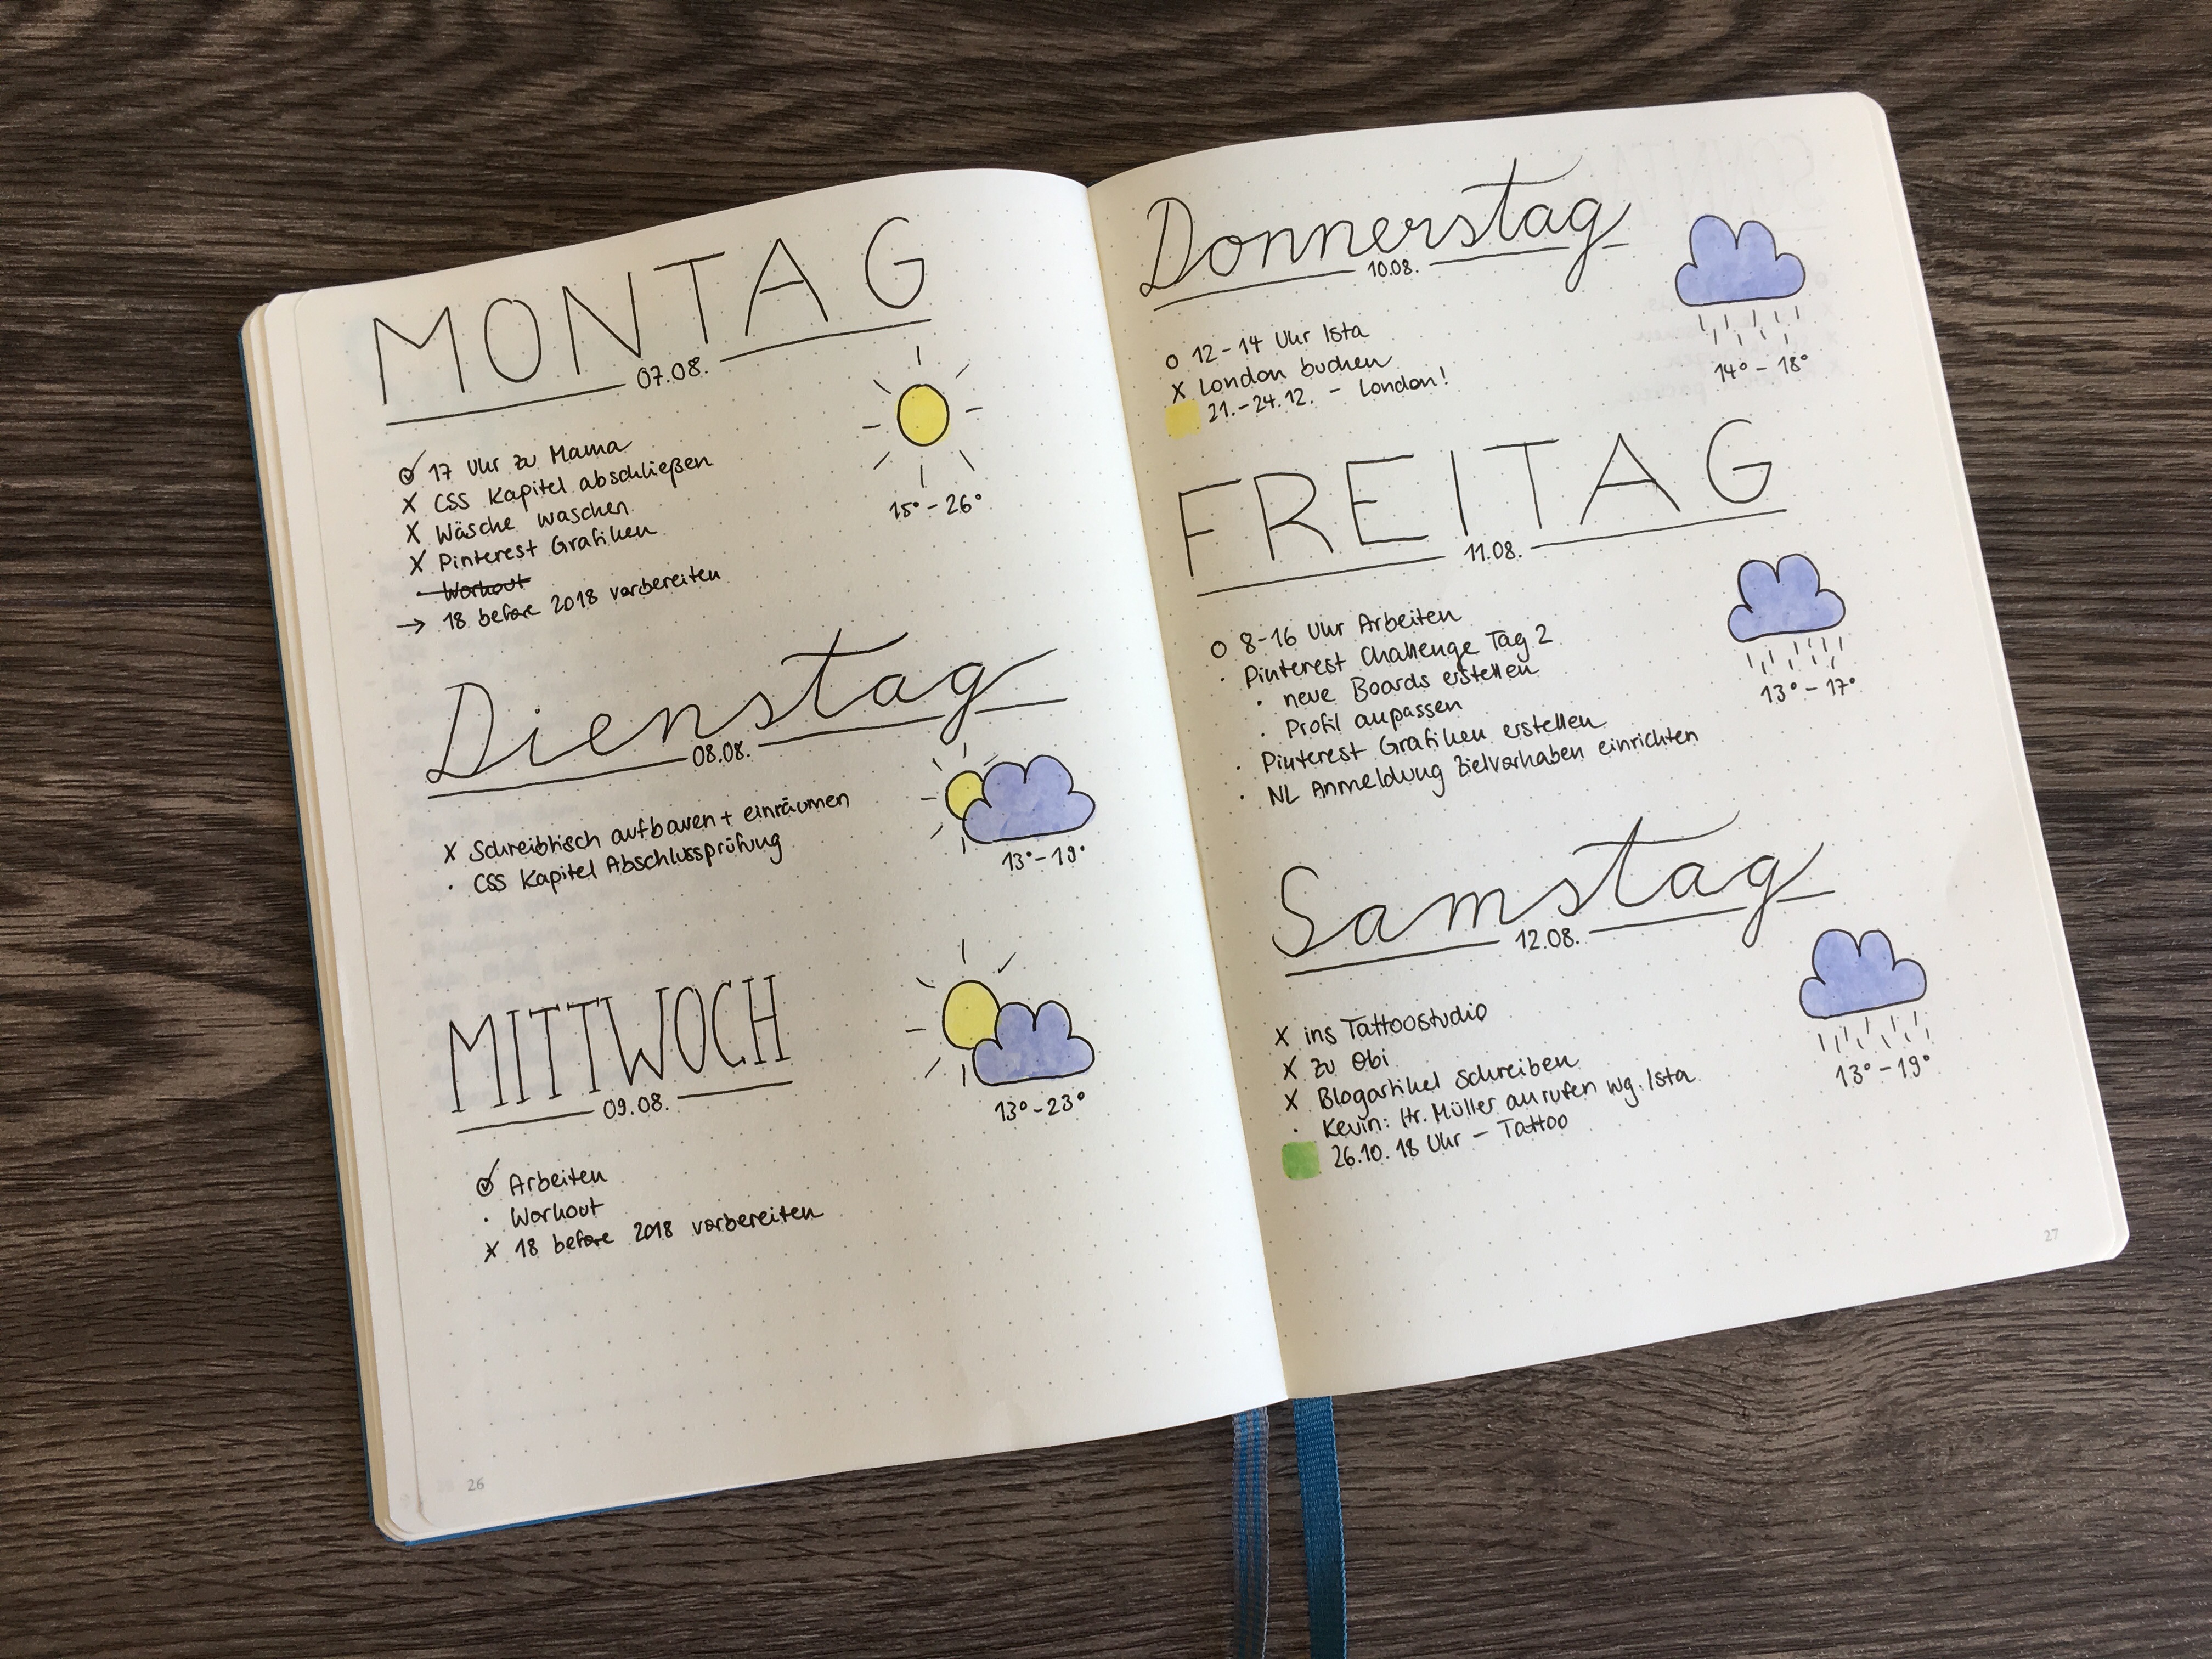 MONTAG
07.08.
17 Uhr zu Mama
X CSS Kapitel abschließen
X Wäsche waschen
X Pinterest Grafiken
· Workout
→ 18 before 2018 vorbereiten
15° - 26°
Dienstag
08.08.
X Schreibtisch aufbauen + einräumen
· CSS Kapitel Abschlussprüfung
13° - 19°
MITTWOCH
09.08.
Arbeiten
· Workout
X 18 before 2018 vorbereiten
13° - 23°
26
Donnerstag
10.08.
O 12-14 Uhr Ista
X London buchen
21.-24.12. - London!
14° - 18°
FREITAG
11.08.
O 8-16 Uhr Arbeiten
· Pinterest Challenge Tag 2
· neue Boards erstellen
· Profil anpassen
· Pinterest Grafiken erstellen
· NL Anmeldung Zielvorhaben einrichten
13° - 17°
Samstag
12.08.
X ins Tattoostudio
X zu Obi
X Blogartikel schreiben
· Kevin: Hr. Müller anrufen wg. Ista
26.10. 18 Uhr - Tattoo
13° - 19°
27